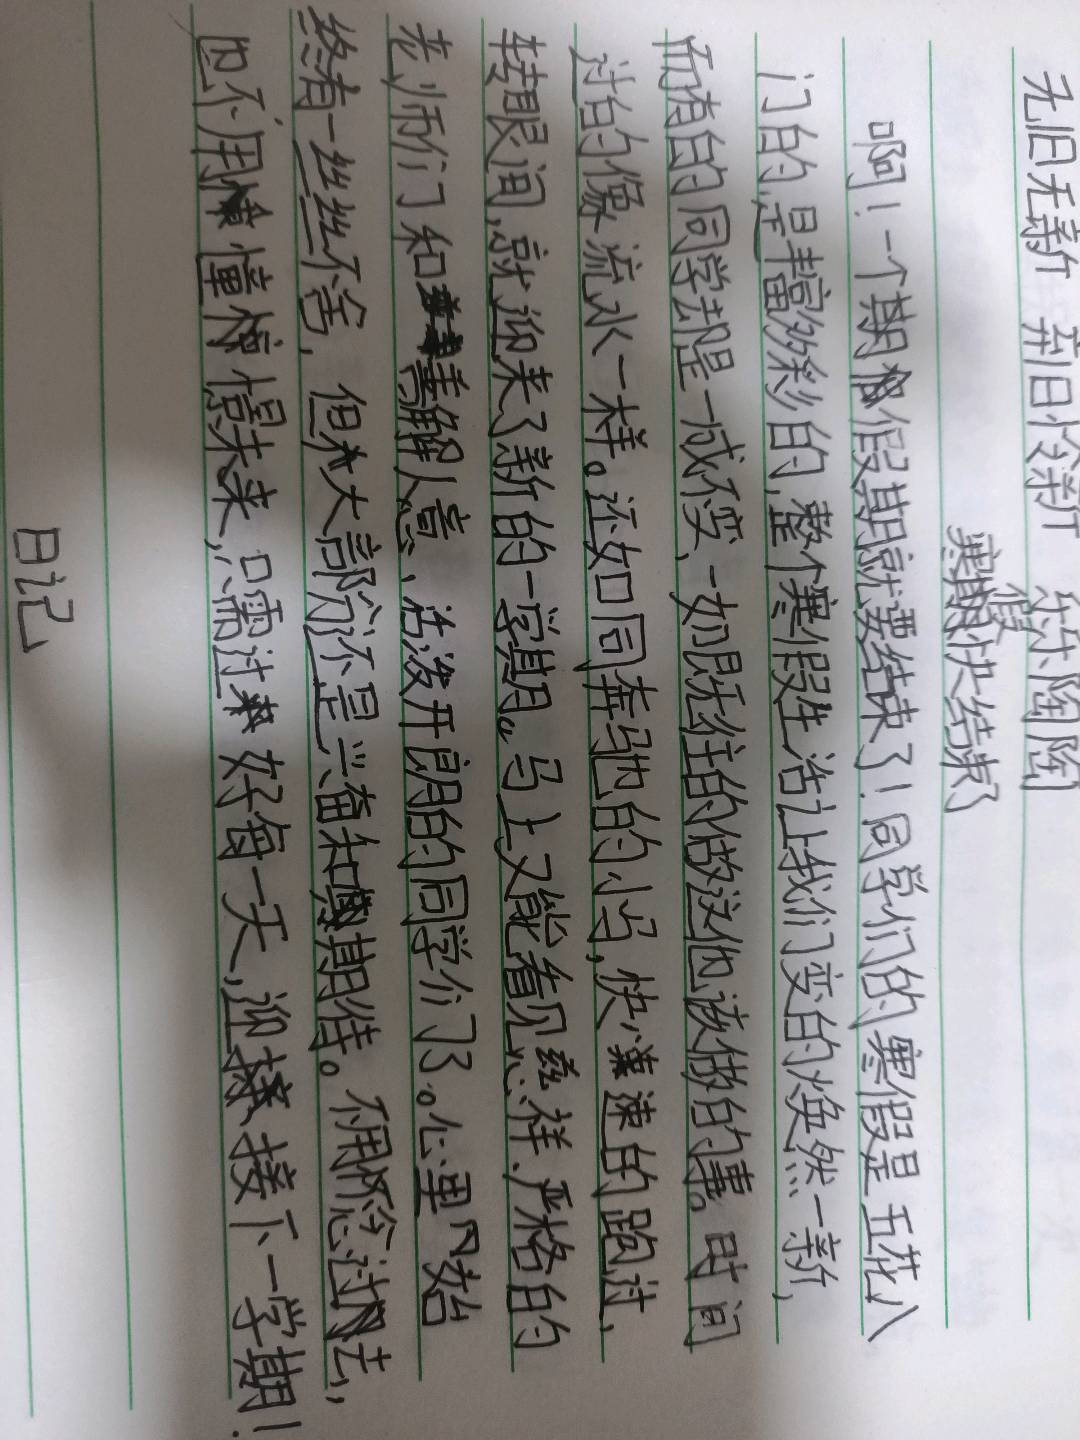 无旧无新 弃旧怜新 乐乐陶陶
寒假快结束了
啊！一个期假期就要结束了！同学们的寒假是五花八
门的，是丰富多彩的，整个寒假生活让我们变的焕然一新，
而有的同学却是一成不变，一如既往的做这他该做的事。时间
过的像流水一样。还如同奔驰的小马，快速的跑过，
转眼间，就迎来了新的一学期。马上又能看见慈祥、严格的
老师们和善解人意、活泼开朗的同学们了。心里始
终有一丝丝不舍，但大部分还是兴奋和期待。不用怀念过去，
也不用憧憬未来，只需过好每一天，迎接下一学期！
日记